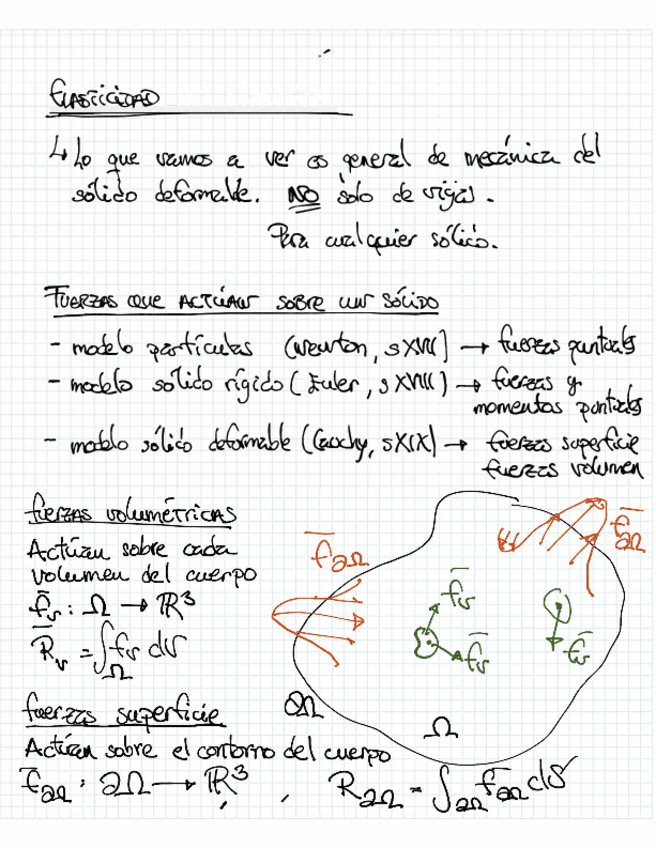 ELASTICIDAD
↳ Lo que vamos a ver es general de mecánica del
sólido deformable. NO sólo de vigas.
Para cualquier sólido.
FUERZAS QUE ACTÚAN SOBRE UN SÓLIDO
- modelo partículas (Newton, s XVII) → fuerzas puntuales
- modelo solido rígido (Euler, s XVIII) → fuerzas y
momentos puntuales
- modelo sólido deformable (Cauchy, s XIX) → fuerzas superficie
fuerzas volumen
fuerzas volumétricas
Actúan sobre cada
volumen del cuerpo
f̄v : Ω → ℝ³
R̄v = ∫Ω fv dV
fuerzas superficie
Actúan sobre el contorno del cuerpo
f̄∂Ω : ∂Ω → ℝ³ , R∂Ω = ∫∂Ω f̄∂Ω dS
f̄∂Ω
f̄∂Ω
f̄v
f̄v
f̄v
∂Ω
Ω